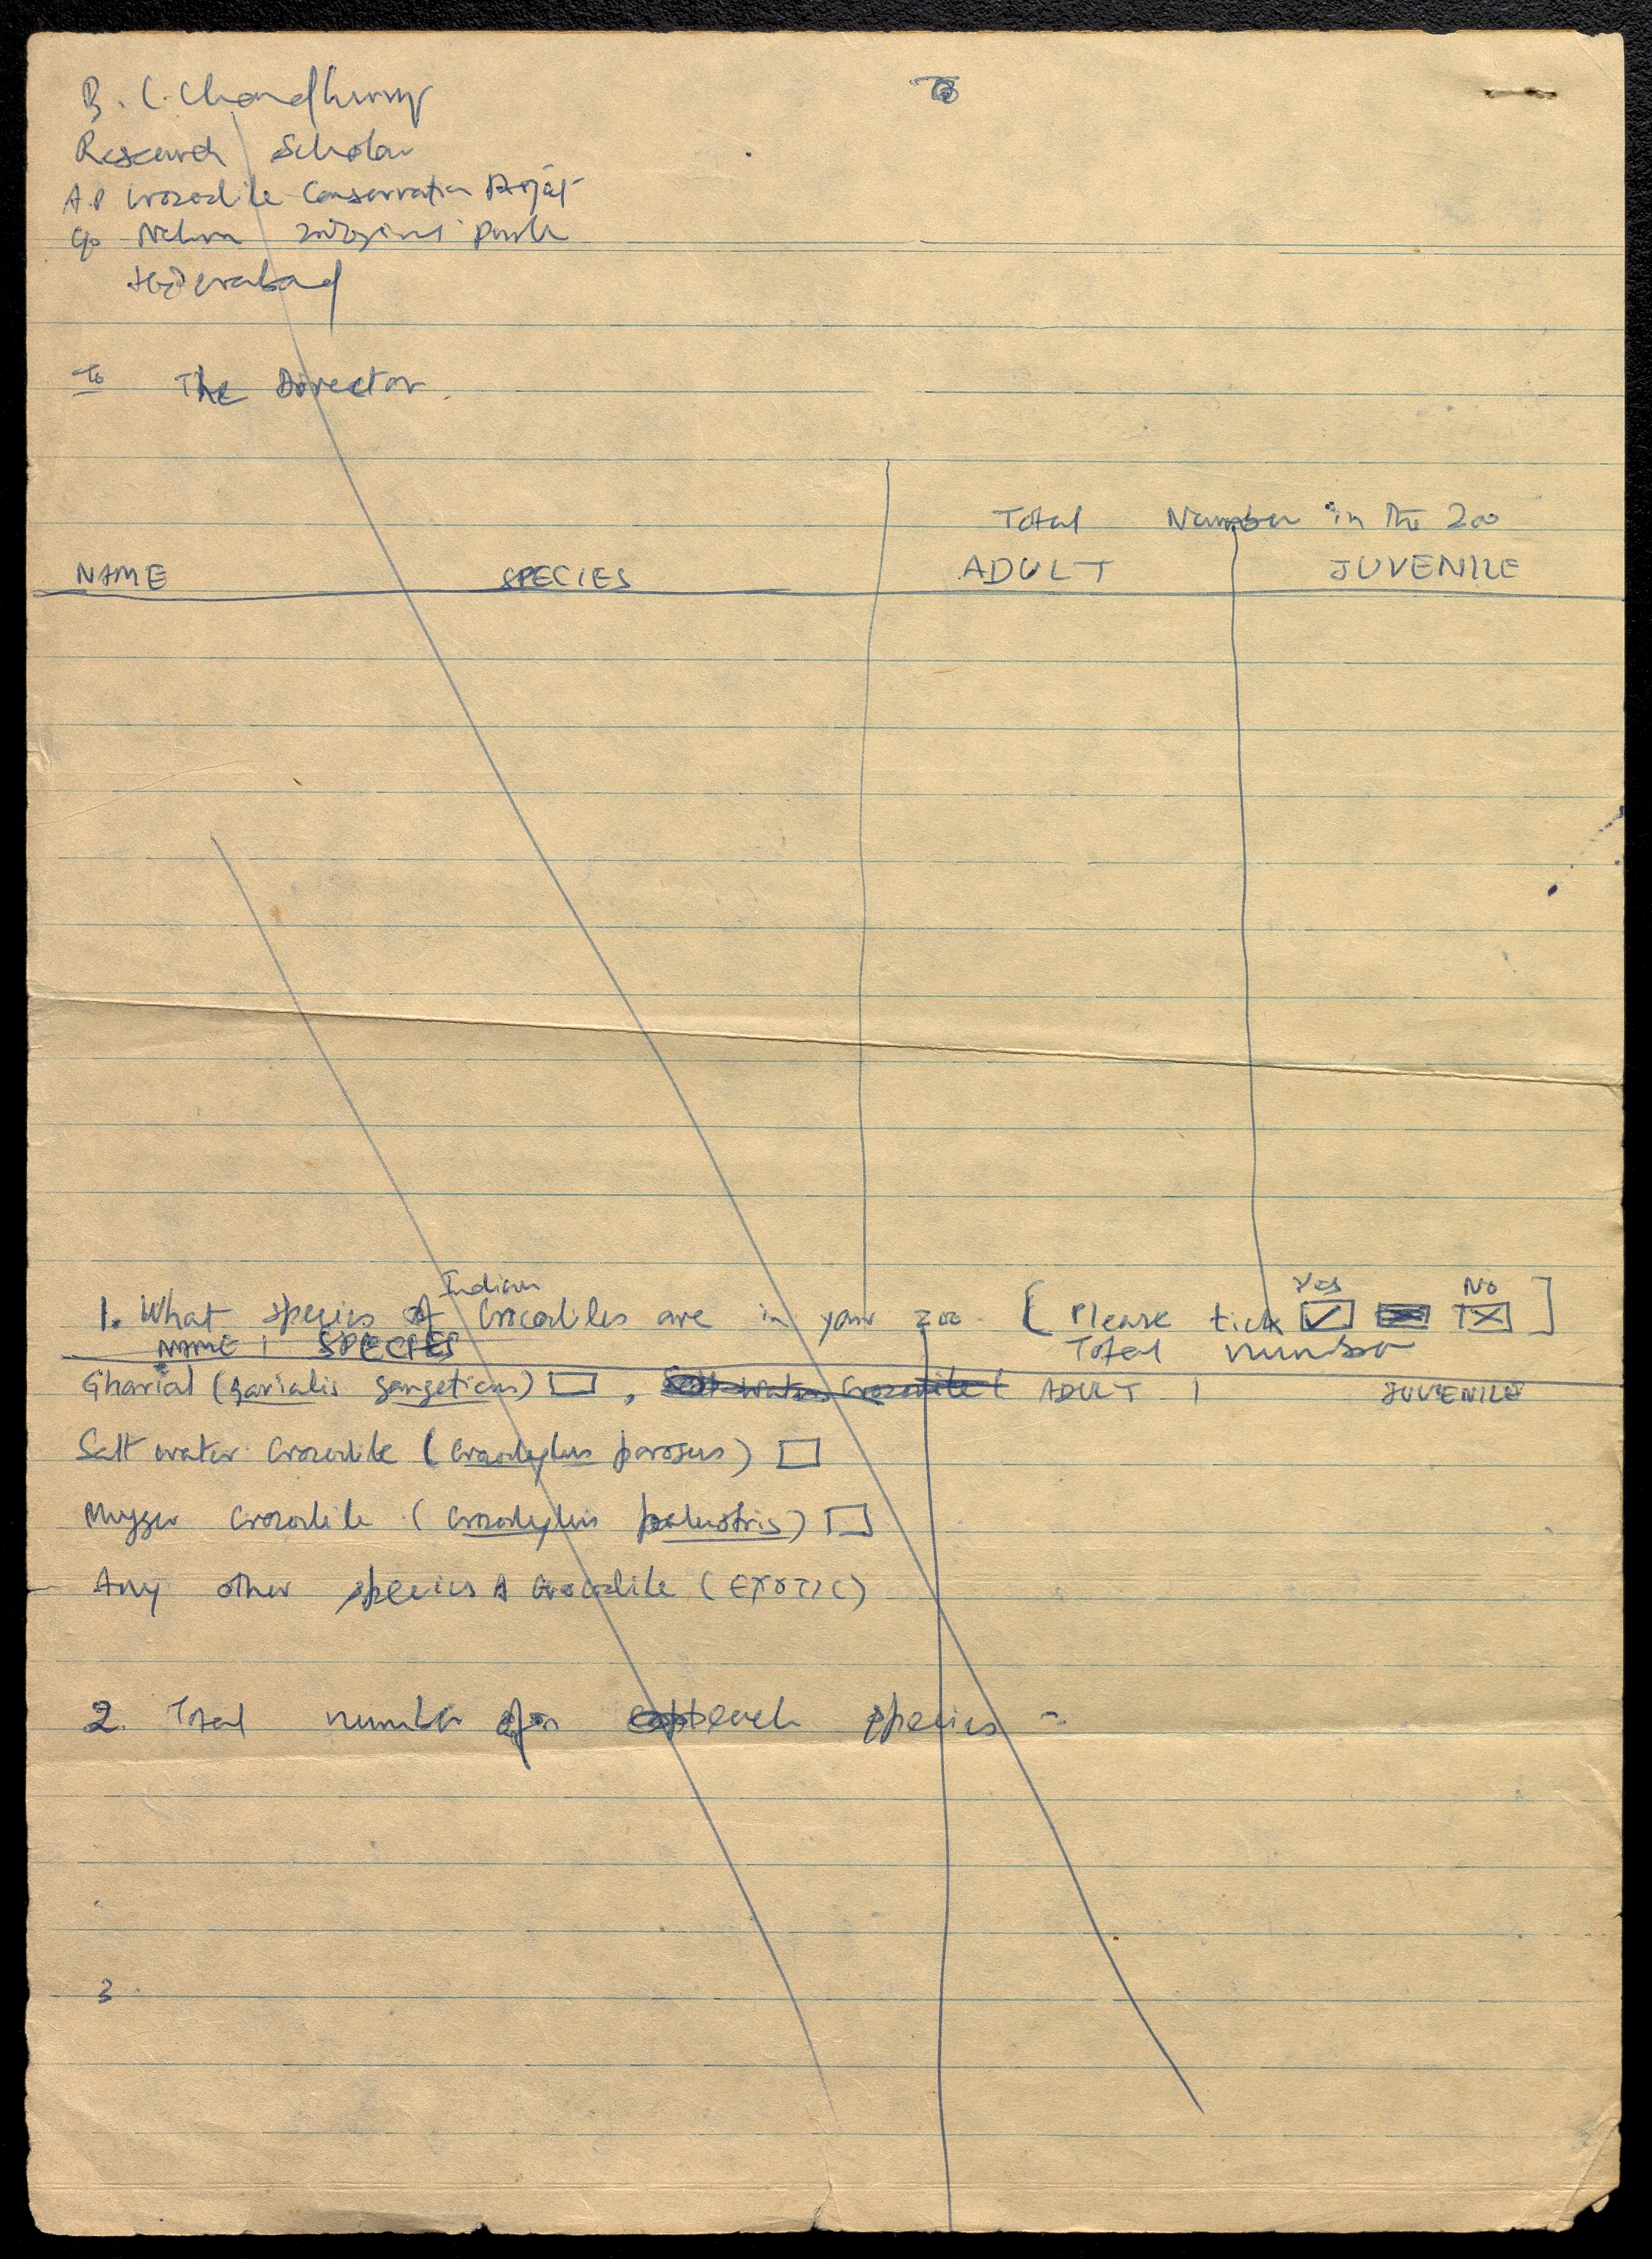 B. C. Choudhury
To
Research Scholar
A.P Crocodile Conservation Project
c/o Nehru Zoological Park
Hyderabad
To The Director.
Total Number in the Zoo
NAME SPECIES ADULT JUVENILE
Indian Yes No
1. What species of Crocodiles are in your zoo [Please tick ]
NAME | SPECIES Total number
Gharial (garialis gangeticus) , Salt water Crocodile ( ADULT | JUVENILE
Salt water Crocodile (Crocodylus porosus)
Mugger Crocodile (Crocodylus palustris)
Any other species of Crocodile (EXOTIC)
2. Total number of each species -
3